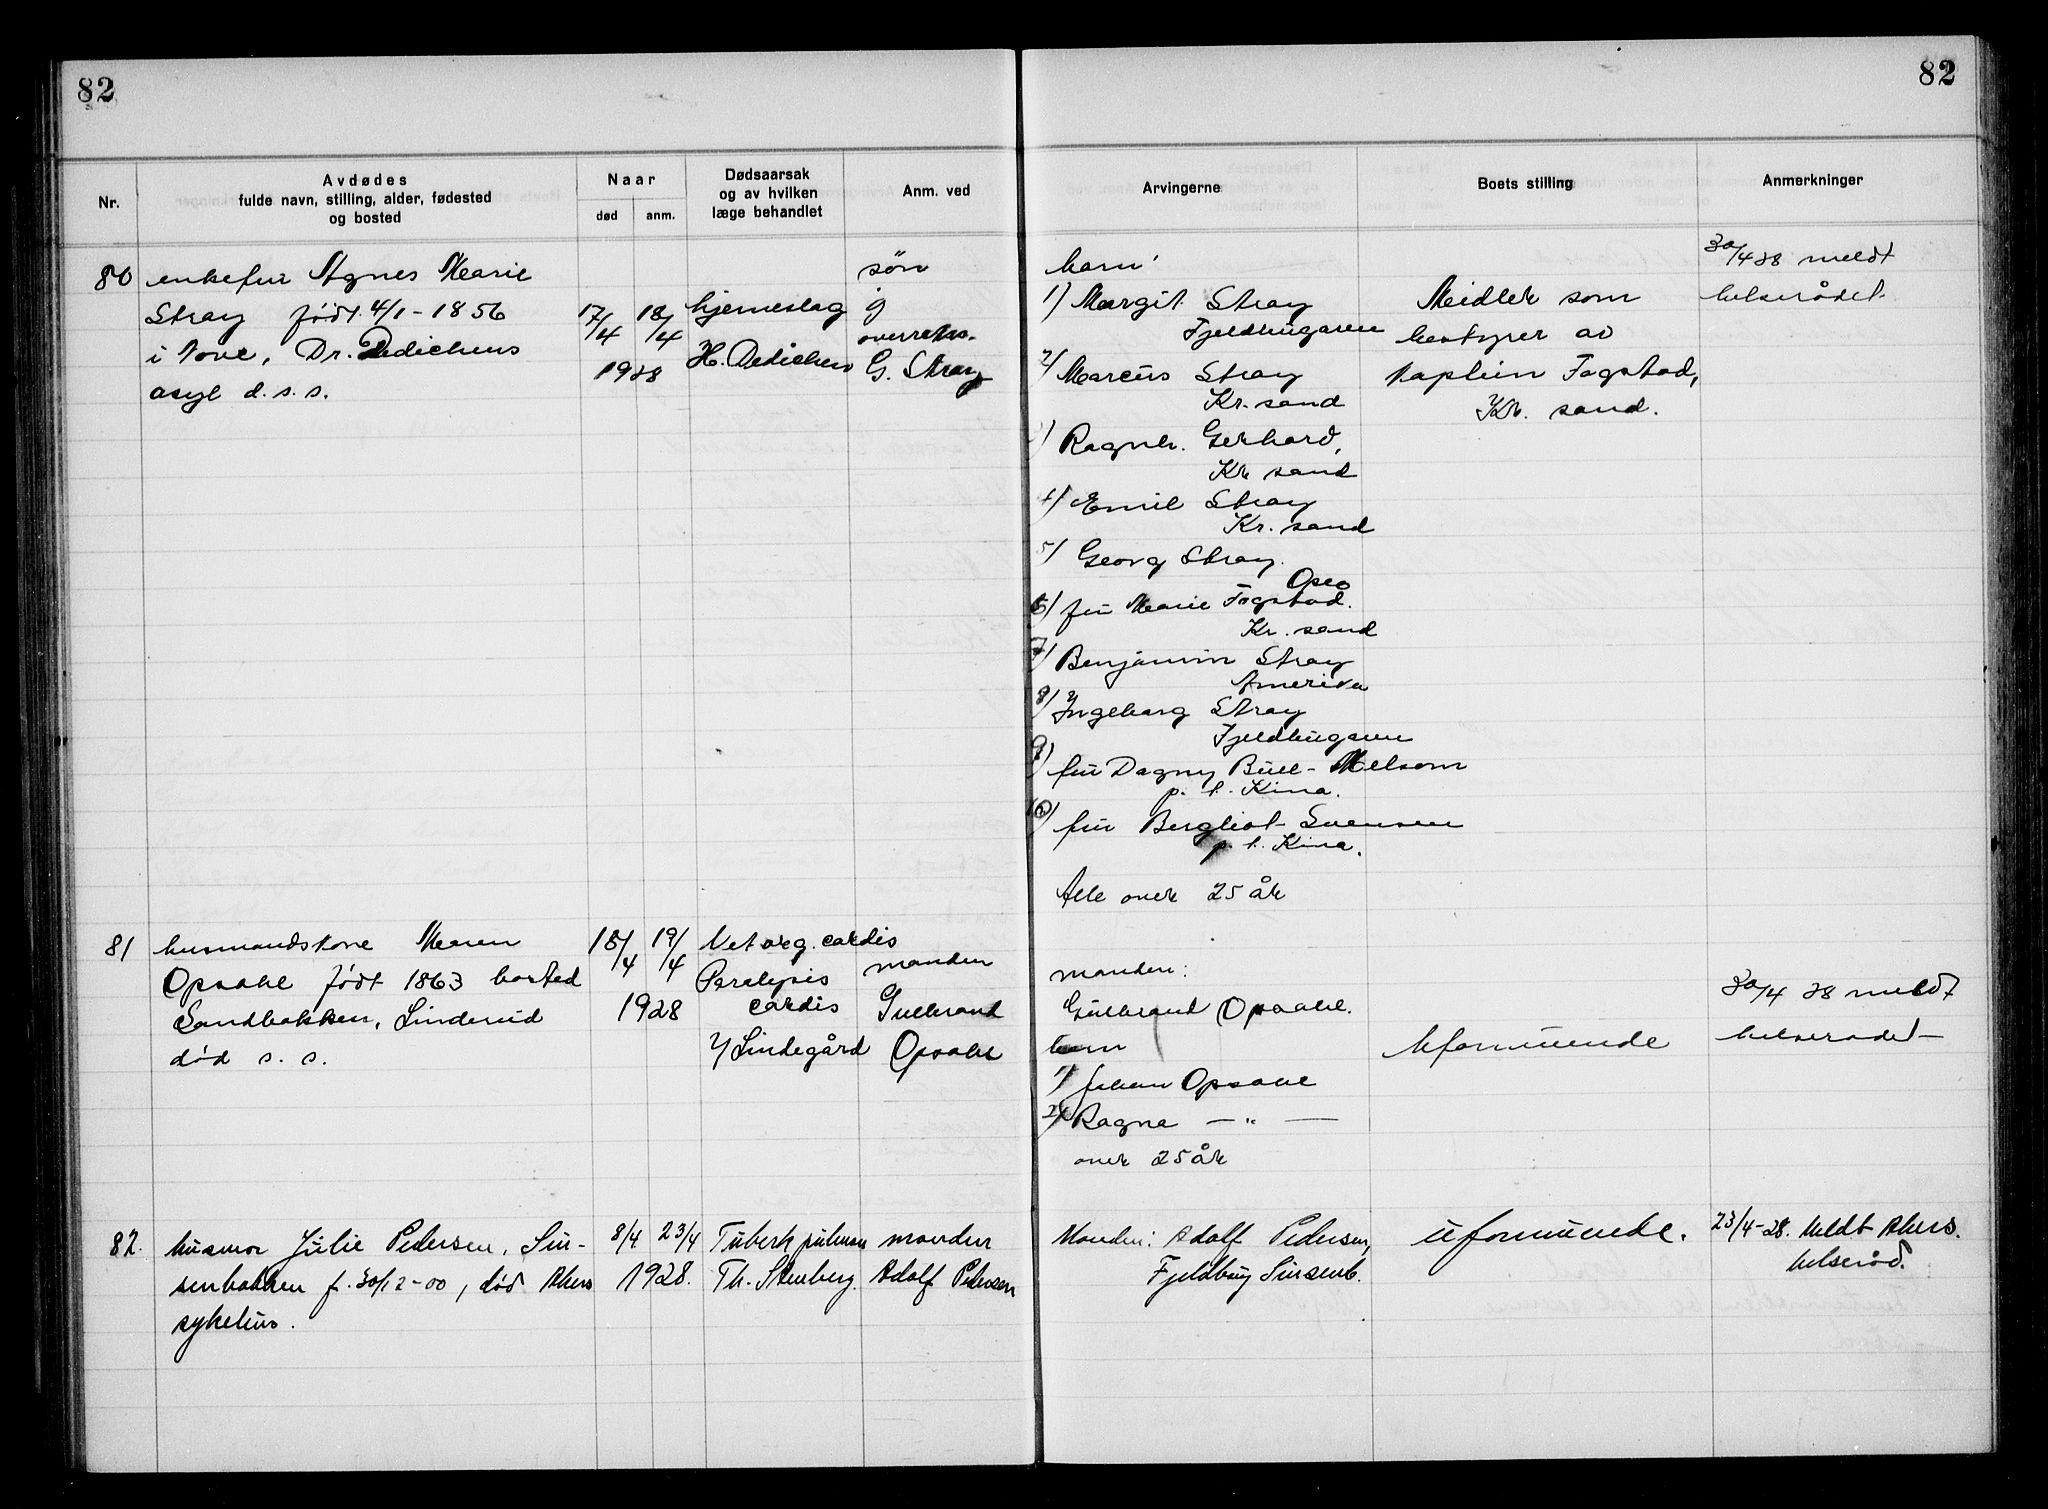 82
82
Nr.
Avdødes
fulde navn, stilling, alder, fødested
og bosted
Naar
død
anm.
Dødsaarsak
og av hvilken
læge behandlet
Anm. ved
Arvingerne
Boets stilling
Anmerkninger
80
enkefru Agnes Marie
Stray født 4/1 - 1856
i Dr. Dedichens
asyl d. s. s.
17/4
18/4
1928
hjerneslag
H. Dedichen
søn
overretss.
G. Stray
barn:
1) Margit Stray
Fjeldhugaren
2) Marcus Stray
Kr. sand
3) Ragnh. Gerhard,
Kr. sand
4) Emil Stray
Kr. sand
5) Georg Stray.
Oslo
6) fru Marie Fagstad.
Kr. sand
7) Benjamin Stray
Amerika
8) Ingeborg Stray
Fjeldhugaren
9) fru Dagny Bull-Melsom
p. t. Kina.
10) fru Bergliot Svensen
p. t. Kina.
Alle over 25 år
Midler som
bestyrer av
kaptein Fagstad,
Kr. sand.
30/4 28 meldt
helserådet
81
husmandskone Maren
Opsahl født 1863 bosted
Sandbakken, Linderud
død s. s.
18/4
19/4
1928
Vet org. cordis
Paralysis
cordis
Y/Lindegård
manden
Gulbrand
Opsahl
manden:
Gulbrand Opsahl.
barn
1) Johan Opsahl
2) Ragna — " —
over 25 år
Uformuende
30/4 28 meldt
helserådet
82.
husmor Julie Pedersen, Sin-
senbakken f. 30/12-00, død Akers
sykehus.
8/4
23/4
1928.
Tuberk pulmon
Th. Stenberg.
manden
Adolf Pedersen
Manden: Adolf Pedersen,
Fjeldhaug Sinsenb.
uformuende.
23/4-28. Meldt Akers
helseråd.